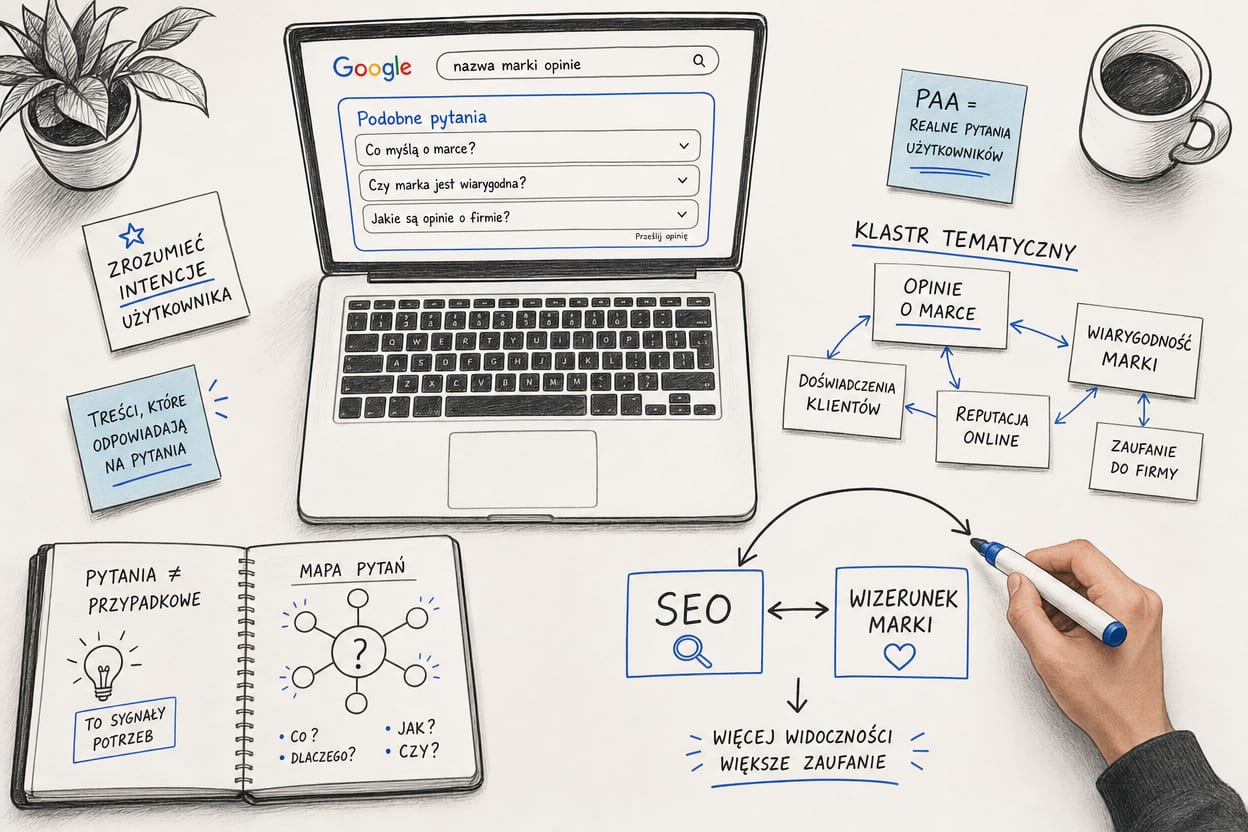 Google
nazwa marki opinie
Podobne pytania
Co myślą o marce?
Czy marka jest wiarygodna?
Jakie są opinie o firmie?
Prześlij opinię
PAA =
REALNE PYTANIA
UŻYTKOWNIKÓW
ZROZUMIEĆ
INTENCJE
UŻYTKOWNIKA
TREŚCI, KTÓRE
ODPOWIADAJĄ
NA PYTANIA
KLASTR TEMATYCZNY
OPINIE
O MARCE
WIARYGODNOŚĆ
MARKI
DOŚWIADCZENIA
KLIENTÓW
REPUTACJA
ONLINE
ZAUFANIE
DO FIRMY
PYTANIA ≠
PRZYPADKOWE
TO SYGNAŁY
POTRZEB
MAPA PYTAŃ
?
• CO?
• DLACZEGO?
• JAK?
• CZY?
SEO
WIZERUNEK
MARKI
WIĘCEJ WIDOCZNOŚCI
WIĘKSZE ZAUFANIE